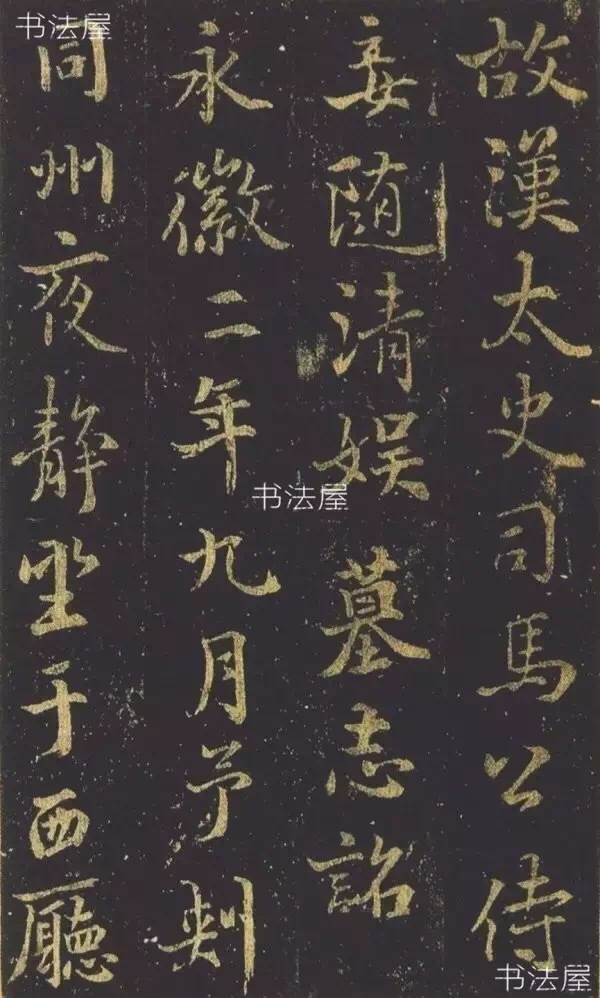 故漢太史司馬公侍
妾随清娱墓志銘
永徽二年九月予刺
同州夜静坐于西廳
书法屋
书法屋
书法屋